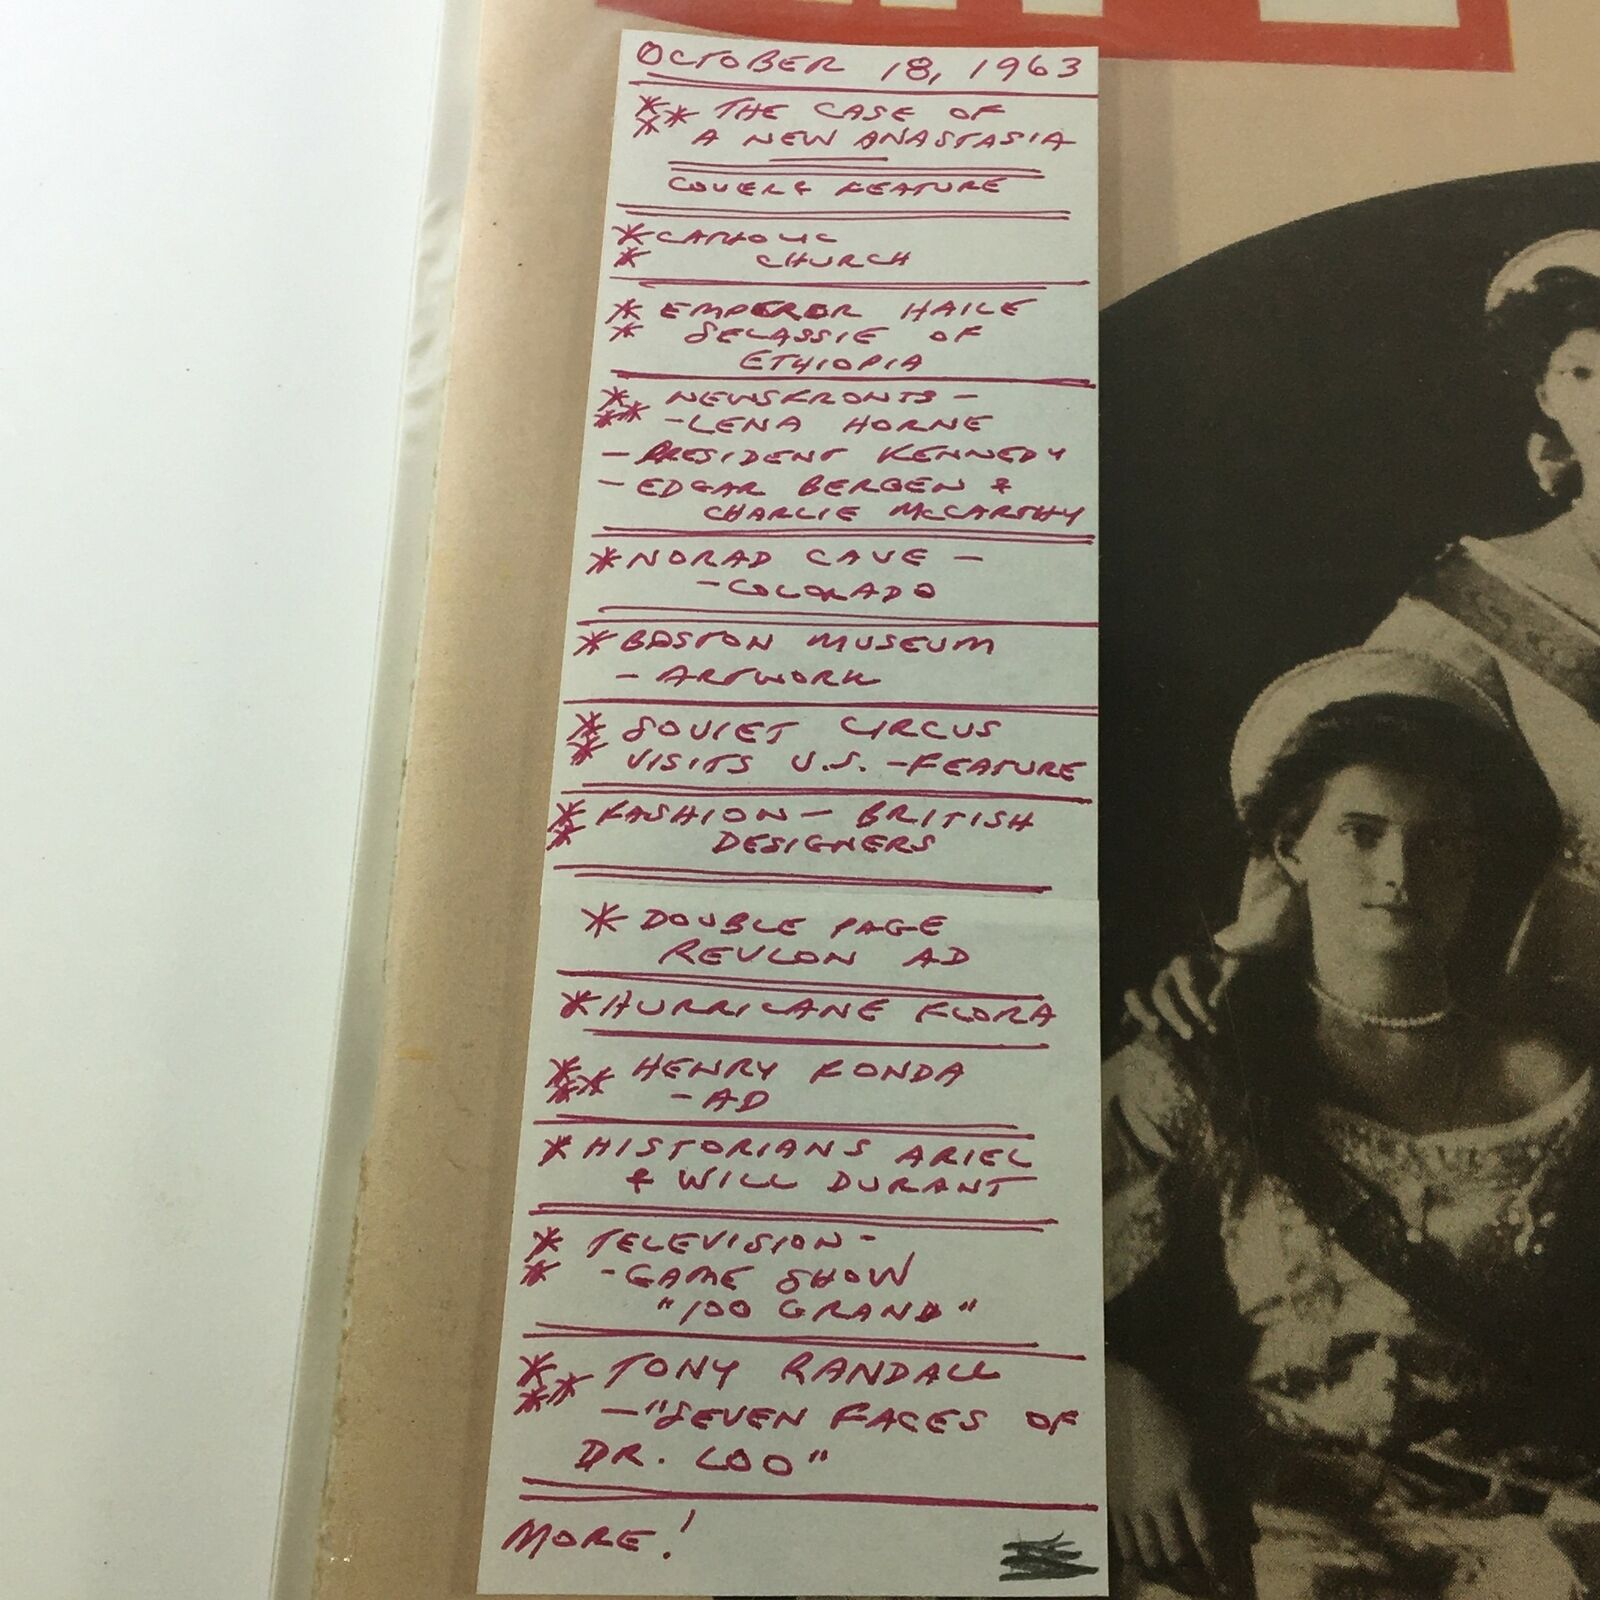 OCTOBER 18, 1963
*** THE CASE OF
A NEW ANASTASIA
COVER & FEATURE
** CATHOLIC
CHURCH
** EMPEROR HAILE
SELASSIE OF
ETHIOPIA
*** NEWSFRONTS -
- LENA HORNE
- PRESIDENT KENNEDY
- EDGAR BERGEN &
CHARLIE McCARTHY
* NORAD CAVE -
- COLORADO
* BOSTON MUSEUM
- ARTWORK
** SOVIET CIRCUS
VISITS U.S. - FEATURE
** FASHION - BRITISH
DESIGNERS
* DOUBLE PAGE
REVLON AD
* HURRICANE FLORA
*** HENRY FONDA
- AD
* HISTORIANS ARIEL
& WILL DURANT
** TELEVISION -
- GAME SHOW
"100 GRAND"
*** TONY RANDALL
- "SEVEN FACES OF
DR. LOO"
MORE!